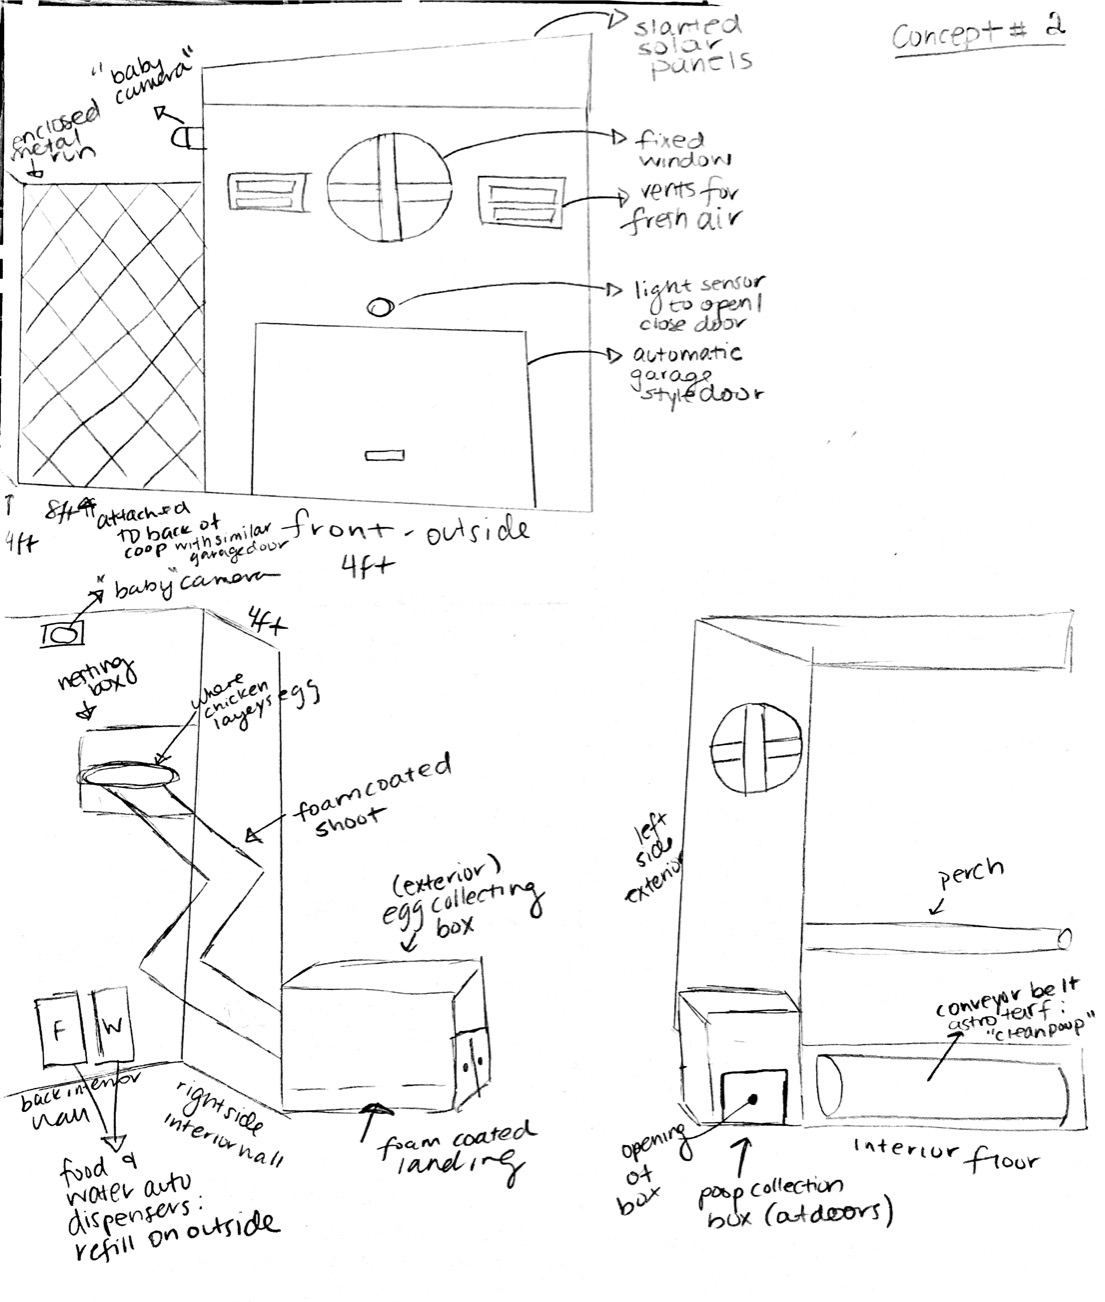 Concept # 2
slanted
solar
panels
"baby
camera"
enclosed
metal
run
fixed
window
vents for
fresh air
light sensor
to open/
close door
automatic
garage
style door
4ft
8ft
attached
to back of
coop with similar
garage door
front - outside
4ft
"baby" camera
4ft
nesting
box
where
chicken
layeys egg
foam coated
shoot
(exterior)
egg collecting
box
F
W
back interior
wall
right side
interior wall
foam coated
landing
food &
water auto
dispensers:
refill on outside
left
side
exterior
perch
conveyor belt
astro terf:
"clean poop"
opening
of
box
poop collection
box (atdoors)
interior floor